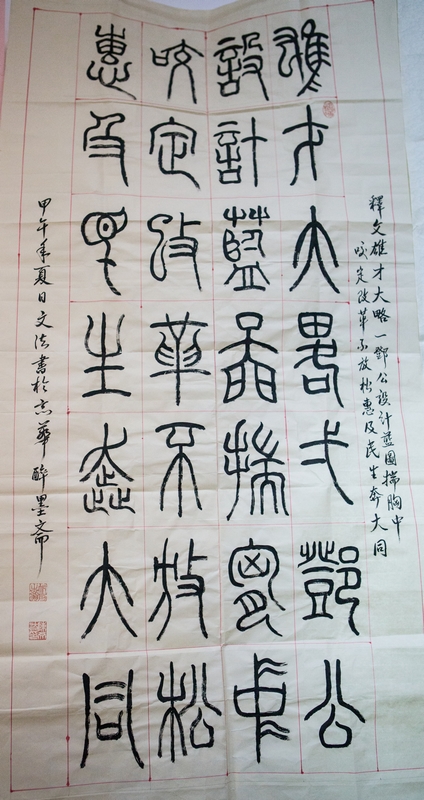 釋文雄才大略一鄧公設計藍圖揣胸中
咬定改革不放松惠及民生奔大同
雄才大畧弌鄧公
設計藍圖揣胸中
咬定改革不放松
惠及民生奔大同
甲午年夏日文法書於京華醉墨齋